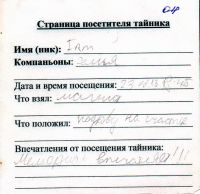 Страница посетителя тайника
Имя (ник):
Компаньоны: семья
Дата и время посещения: 23
Что взял: магнит
Что положил: подкову на счастье
Впечатления от посещения тайника:
Мемориал впечатлил!!!